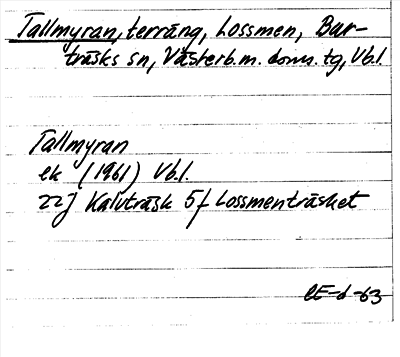 Tallmyran, terräng, Lossmen, Bur-
träsks sn, Västerb.m. doms. tg, Vb.l.
Tallmyran
ek (1961) Vb.l.
22j Kalvträsk 5f Lossmenträsket
CE-d-63